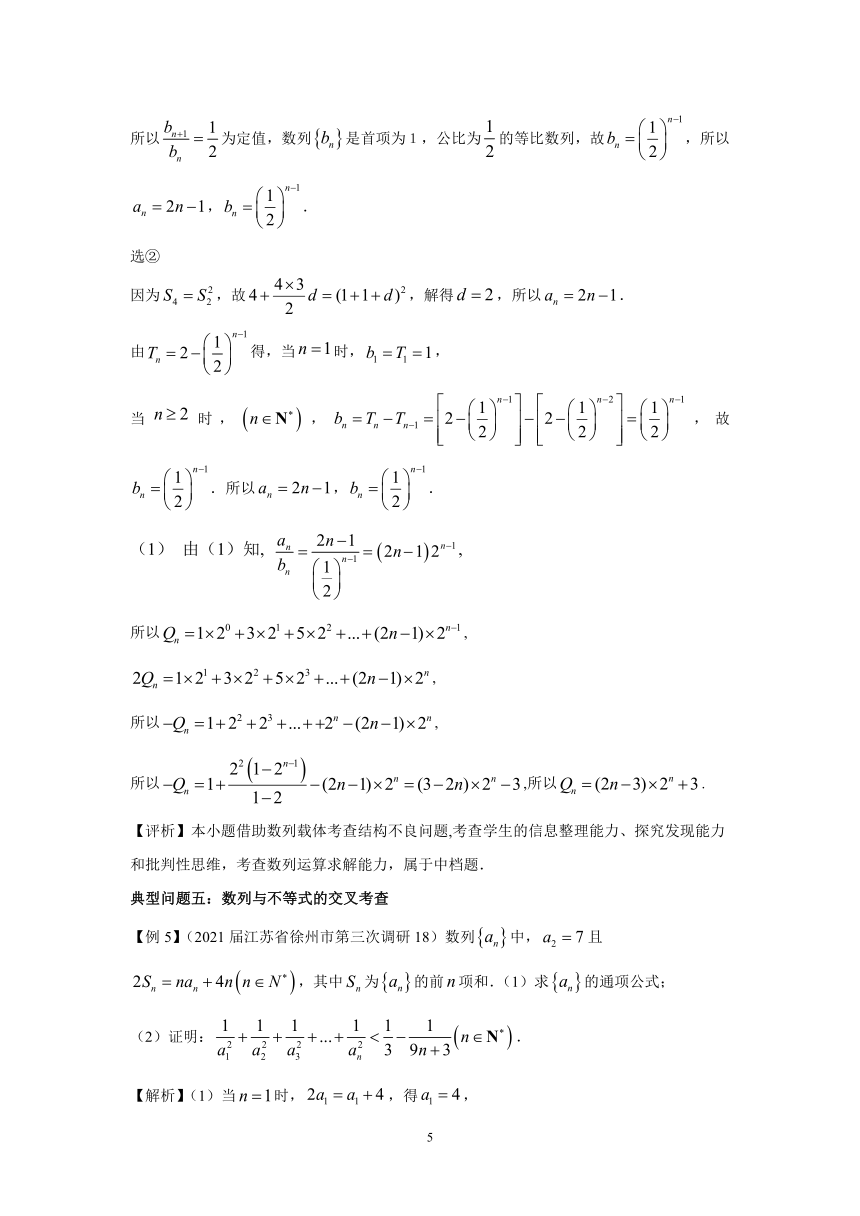 所以 $\frac{b_{n+1}}{b_n}=\frac{1}{2}$ 为定值，数列 $\{b_n\}$ 是首项为 1，公比为 $\frac{1}{2}$ 的等比数列，故 $b_n=\left(\frac{1}{2}\right)^{n-1}$，所以
$a_n=2n-1$，$b_n=\left(\frac{1}{2}\right)^{n-1}$．
选②
因为 $S_4=S_2^2$，故 $4+\frac{4\times3}{2}d=(1+1+d)^2$，解得 $d=2$，所以 $a_n=2n-1$．
由 $T_n=2-\left(\frac{1}{2}\right)^{n-1}$ 得，当 $n=1$ 时，$b_1=T_1=1$，
当 $n\geq2$ 时，$(n\in\mathbf{N}^*)$，$b_n=T_n-T_{n-1}=\left[2-\left(\frac{1}{2}\right)^{n-1}\right]-\left[2-\left(\frac{1}{2}\right)^{n-2}\right]=\left(\frac{1}{2}\right)^{n-1}$，故
$b_n=\left(\frac{1}{2}\right)^{n-1}$．所以 $a_n=2n-1$，$b_n=\left(\frac{1}{2}\right)^{n-1}$．
（1） 由（1）知, $\frac{a_n}{b_n}=\frac{2n-1}{\left(\frac{1}{2}\right)^{n-1}}=(2n-1)2^{n-1}$,
所以 $Q_n=1\times2^0+3\times2^1+5\times2^2+...+(2n-1)\times2^{n-1}$,
$2Q_n=1\times2^1+3\times2^2+5\times2^3+...+(2n-1)\times2^n$,
所以 $-Q_n=1+2^2+2^3+...++2^n-(2n-1)\times2^n$,
所以 $-Q_n=1+\frac{2^2(1-2^{n-1})}{1-2}-(2n-1)\times2^n=(3-2n)\times2^n-3$,所以 $Q_n=(2n-3)\times2^n+3$．
【评析】本小题借助数列载体考查结构不良问题,考查学生的信息整理能力、探究发现能力
和批判性思维，考查数列运算求解能力，属于中档题．
典型问题五：数列与不等式的交叉考查
【例 5】（2021 届江苏省徐州市第三次调研 18）数列 $\{a_n\}$ 中，$a_2=7$ 且
$2S_n=na_n+4n(n\in N^*)$，其中 $S_n$ 为 $\{a_n\}$ 的前 $n$ 项和.（1）求 $\{a_n\}$ 的通项公式；
（2）证明：$\frac{1}{a_1^2}+\frac{1}{a_2^2}+\frac{1}{a_3^2}+...+\frac{1}{a_n^2}<\frac{1}{3}-\frac{1}{9n+3}(n\in\mathbf{N}^*)$．
【解析】（1）当 $n=1$ 时，$2a_1=a_1+4$，得 $a_1=4$，
5